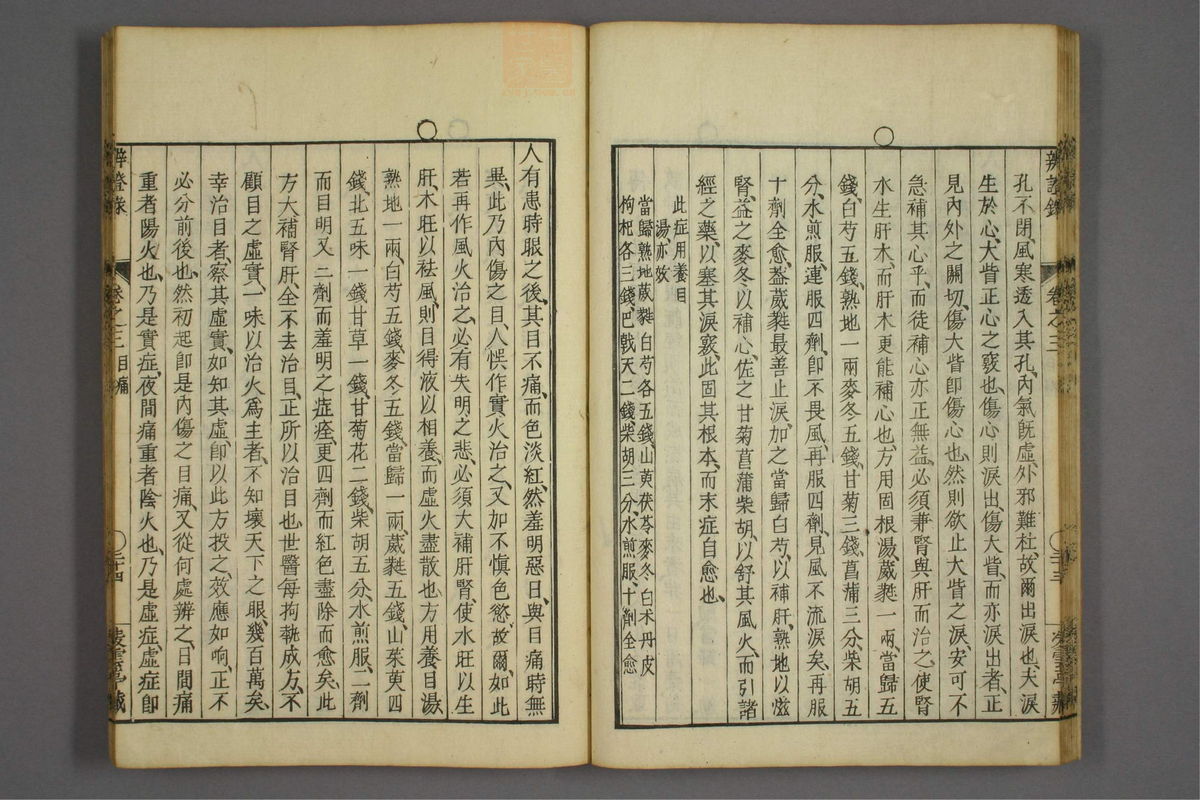 孔不閉風寒透入其孔内氣旣虛外邪難杜故爾出淚也夫淚
生於心大眥正心之竅也傷心則淚出傷大眥而亦淚出者正
見内外之關切傷大眥卽傷心也然則欲止大眥之淚安可不
急補其心乎而徒補心亦正無益必須兼腎與肝而治之使腎
水生肝木而肝木更能補心也方用固根湯葳蕤一兩當歸五
錢白芍五錢熟地一兩麥冬五錢甘菊三錢菖蒲三分柴胡五
分水煎服連服四劑卽不畏風再服四劑見風不流淚矣再服
十劑全愈葢葳蕤最善止淚加之當歸白芍以補肝熟地以滋
腎益之麥冬以補心佐之甘菊菖蒲柴胡以舒其風火而引諸
經之藥以塞其淚竅此固其根本而末症自愈也
此症用養目
湯亦效
當歸熟地葳蕤白芍各五錢山萸茯苓麥冬白术丹皮
枸杞各三錢巴戟天二錢柴胡三分水煎服十劑全愈
人有患時眼之後其目不痛而色淡紅然羞明惡日與目痛時無
異此乃内傷之目人悞作實火治之又加不愼色慾故爾如此
若再作風火治之必有失明之悲必須大補肝腎使水旺以生
肝木旺以祛風則目得液以相養而虛火盡散也方用養目湯
熟地一兩白芍五錢麥冬五錢當歸一兩葳蕤五錢山茱萸四
錢北五味一錢甘草一錢甘菊花二錢柴胡五分水煎服二劑
而目明又二劑而羞明之症痊更四劑而紅色盡除而愈矣此
方大補腎肝全不去治目正所以治目也世醫每拘執成方不
顧目之虛實一味以治火爲主者不知壞天下之眼幾百萬矣
幸治目者察其虛實如知其虛卽以此方投之效應如响正不
必分前後也然初起卽是内傷之目痛又從何處辨之日間痛
重者陽火也乃是實症夜間痛重者陰火也乃是虛症虛症卽
辨證錄
卷之三 目痛
三十四